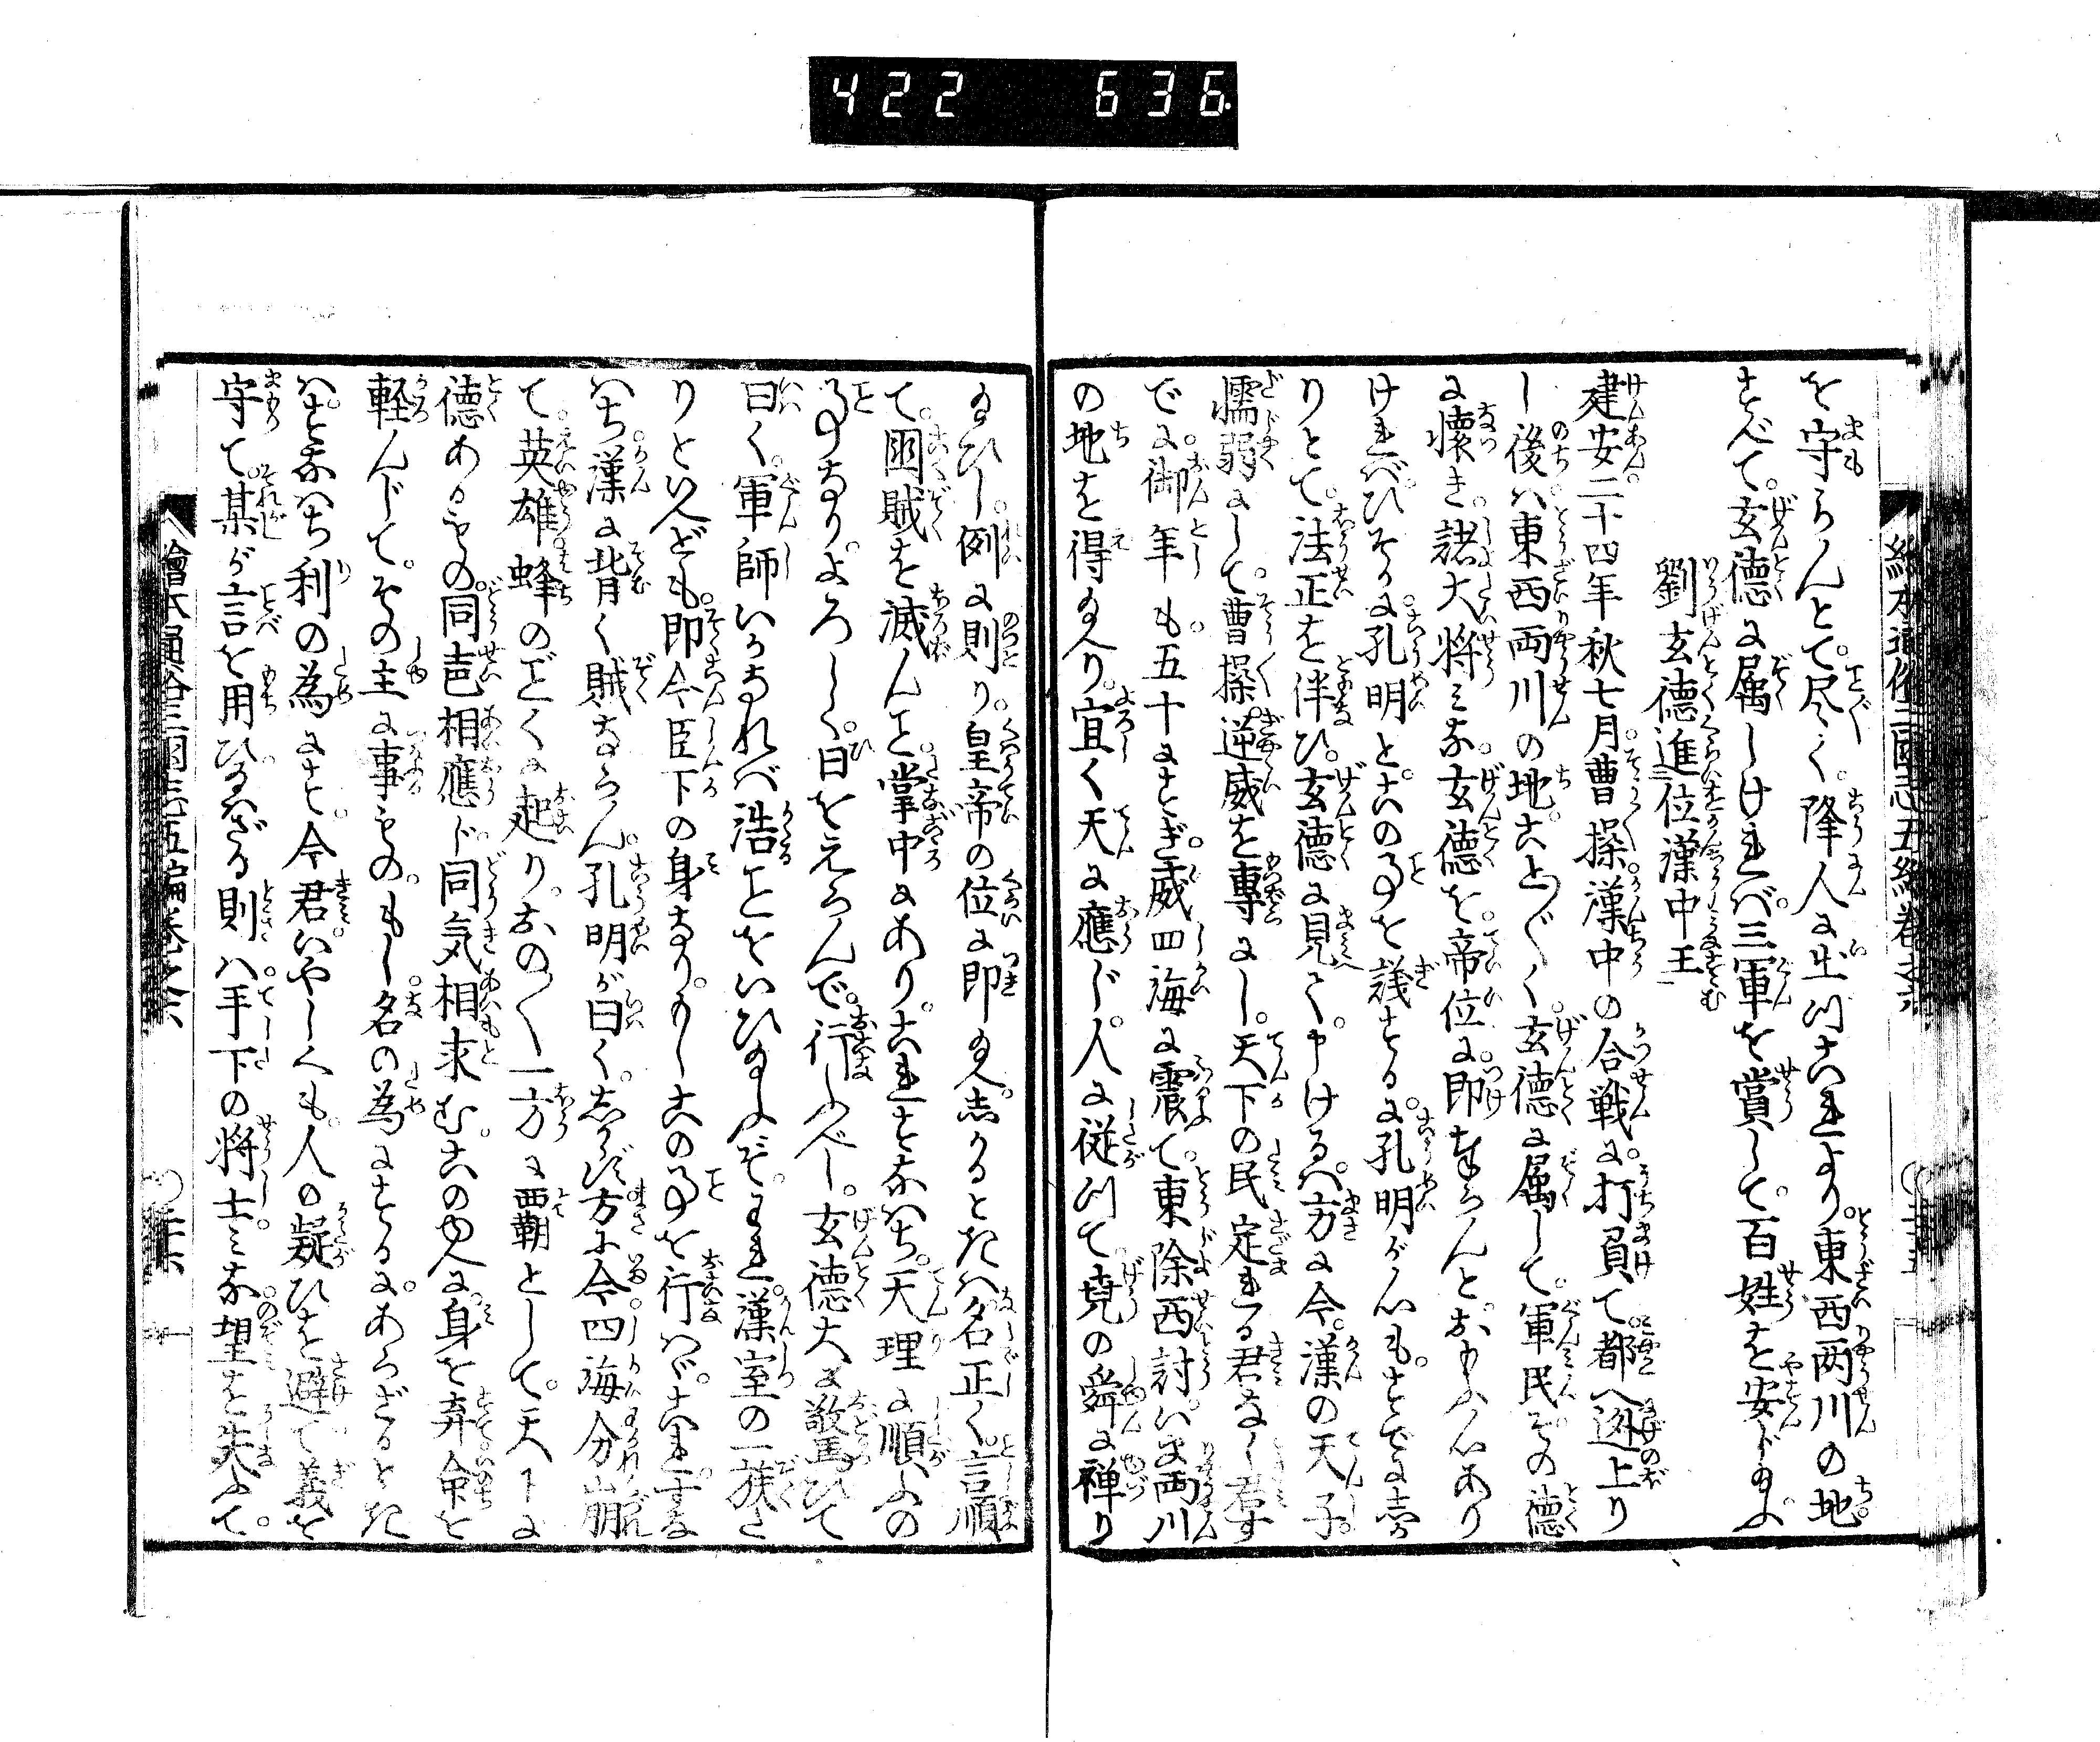 422 636
繪本通俗三國志五編巻之六
を守らんとて。尽く。降人に出けれより。東西両川の地。
すべて。玄徳に属しければ。三軍を賞して。百姓を安じ給ふ
劉玄徳進位漢中王
建安二十四年秋七月。曹操。漢中の合戦に。打負て。都へ迯上り
し後は。東西両川の地。ことごとく。玄徳に属して。軍民その徳
に懐き。諸大将みな。玄徳を。帝位に即奉らんと。おもふ心あり
ければ。ひそかに。孔明と。この事を議する。に。孔明が心も。すでに志か
りとて。法正を伴ひ。玄徳に見て。申けるハ。方に今。漢の天子。
懦弱にして。曹操。逆威を専にし。天下の民定れる君なく。君す
でに。御年も。五十にすぎ。威四海に震て。東除西討。いま両川
の地を得給へり。宜く天に應じ。人に従つて。尭の舜に禅り
給ひし。例に則り。皇帝の位に即給へ。志かるときハ。名正く。言順に
て。国賊を滅んこと。掌中にあり。これすなはち。天理に順ふの
事なり。よろしく。日をえらんで。行ふべし。玄徳大に驚ひて
曰く。軍師いかなれば浩ことをいひ給ふぞ。われ。漢室の一族た
りといへども。即今臣下の身なり。もしこの事を行はゞ。これすな
はち漢に背く賊ならん。孔明が曰く。志からず。方に今。四海分崩し
て。英雄蜂のごとくに起り。おのおの一方に覇として。天下に
徳あるもの。同声相應じ。同気相求む。この四人に。身を弃命を
軽んじて。その主に事るもの。もし名の為にするに。あらざるとき
は。すなはち利の為にす。今君。いやしくも。人の疑ひを避て義を
守て。某が言を用ひ給はざる則ハ。手下の将士。みな。望を失ふて。
繪本通俗三國志五編巻之六